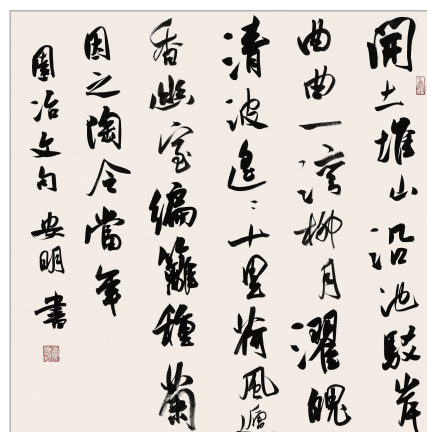 開土堆山沿池駁岸
曲曲一灣柳月濯魄
清波遙〻十里荷風遞
香幽室編籬種菊
因之陶令當年
園冶文句安明書